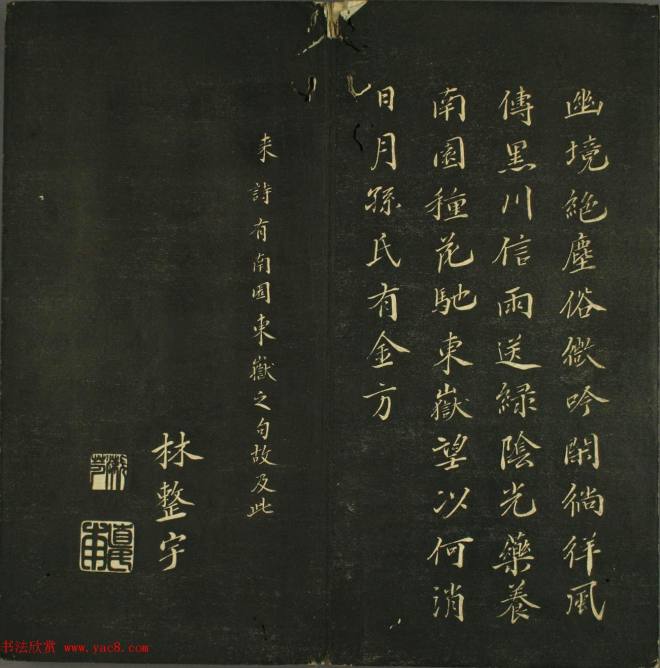 幽境絶塵俗微吟閑徜徉風
傳黒川信雨送緑陰光藥養
南園種花馳東嶽望以何消
日月孫氏有金方
来詩有南園東嶽之句故及此
林整宇
直民甫
书法欣赏 www.yac8.com